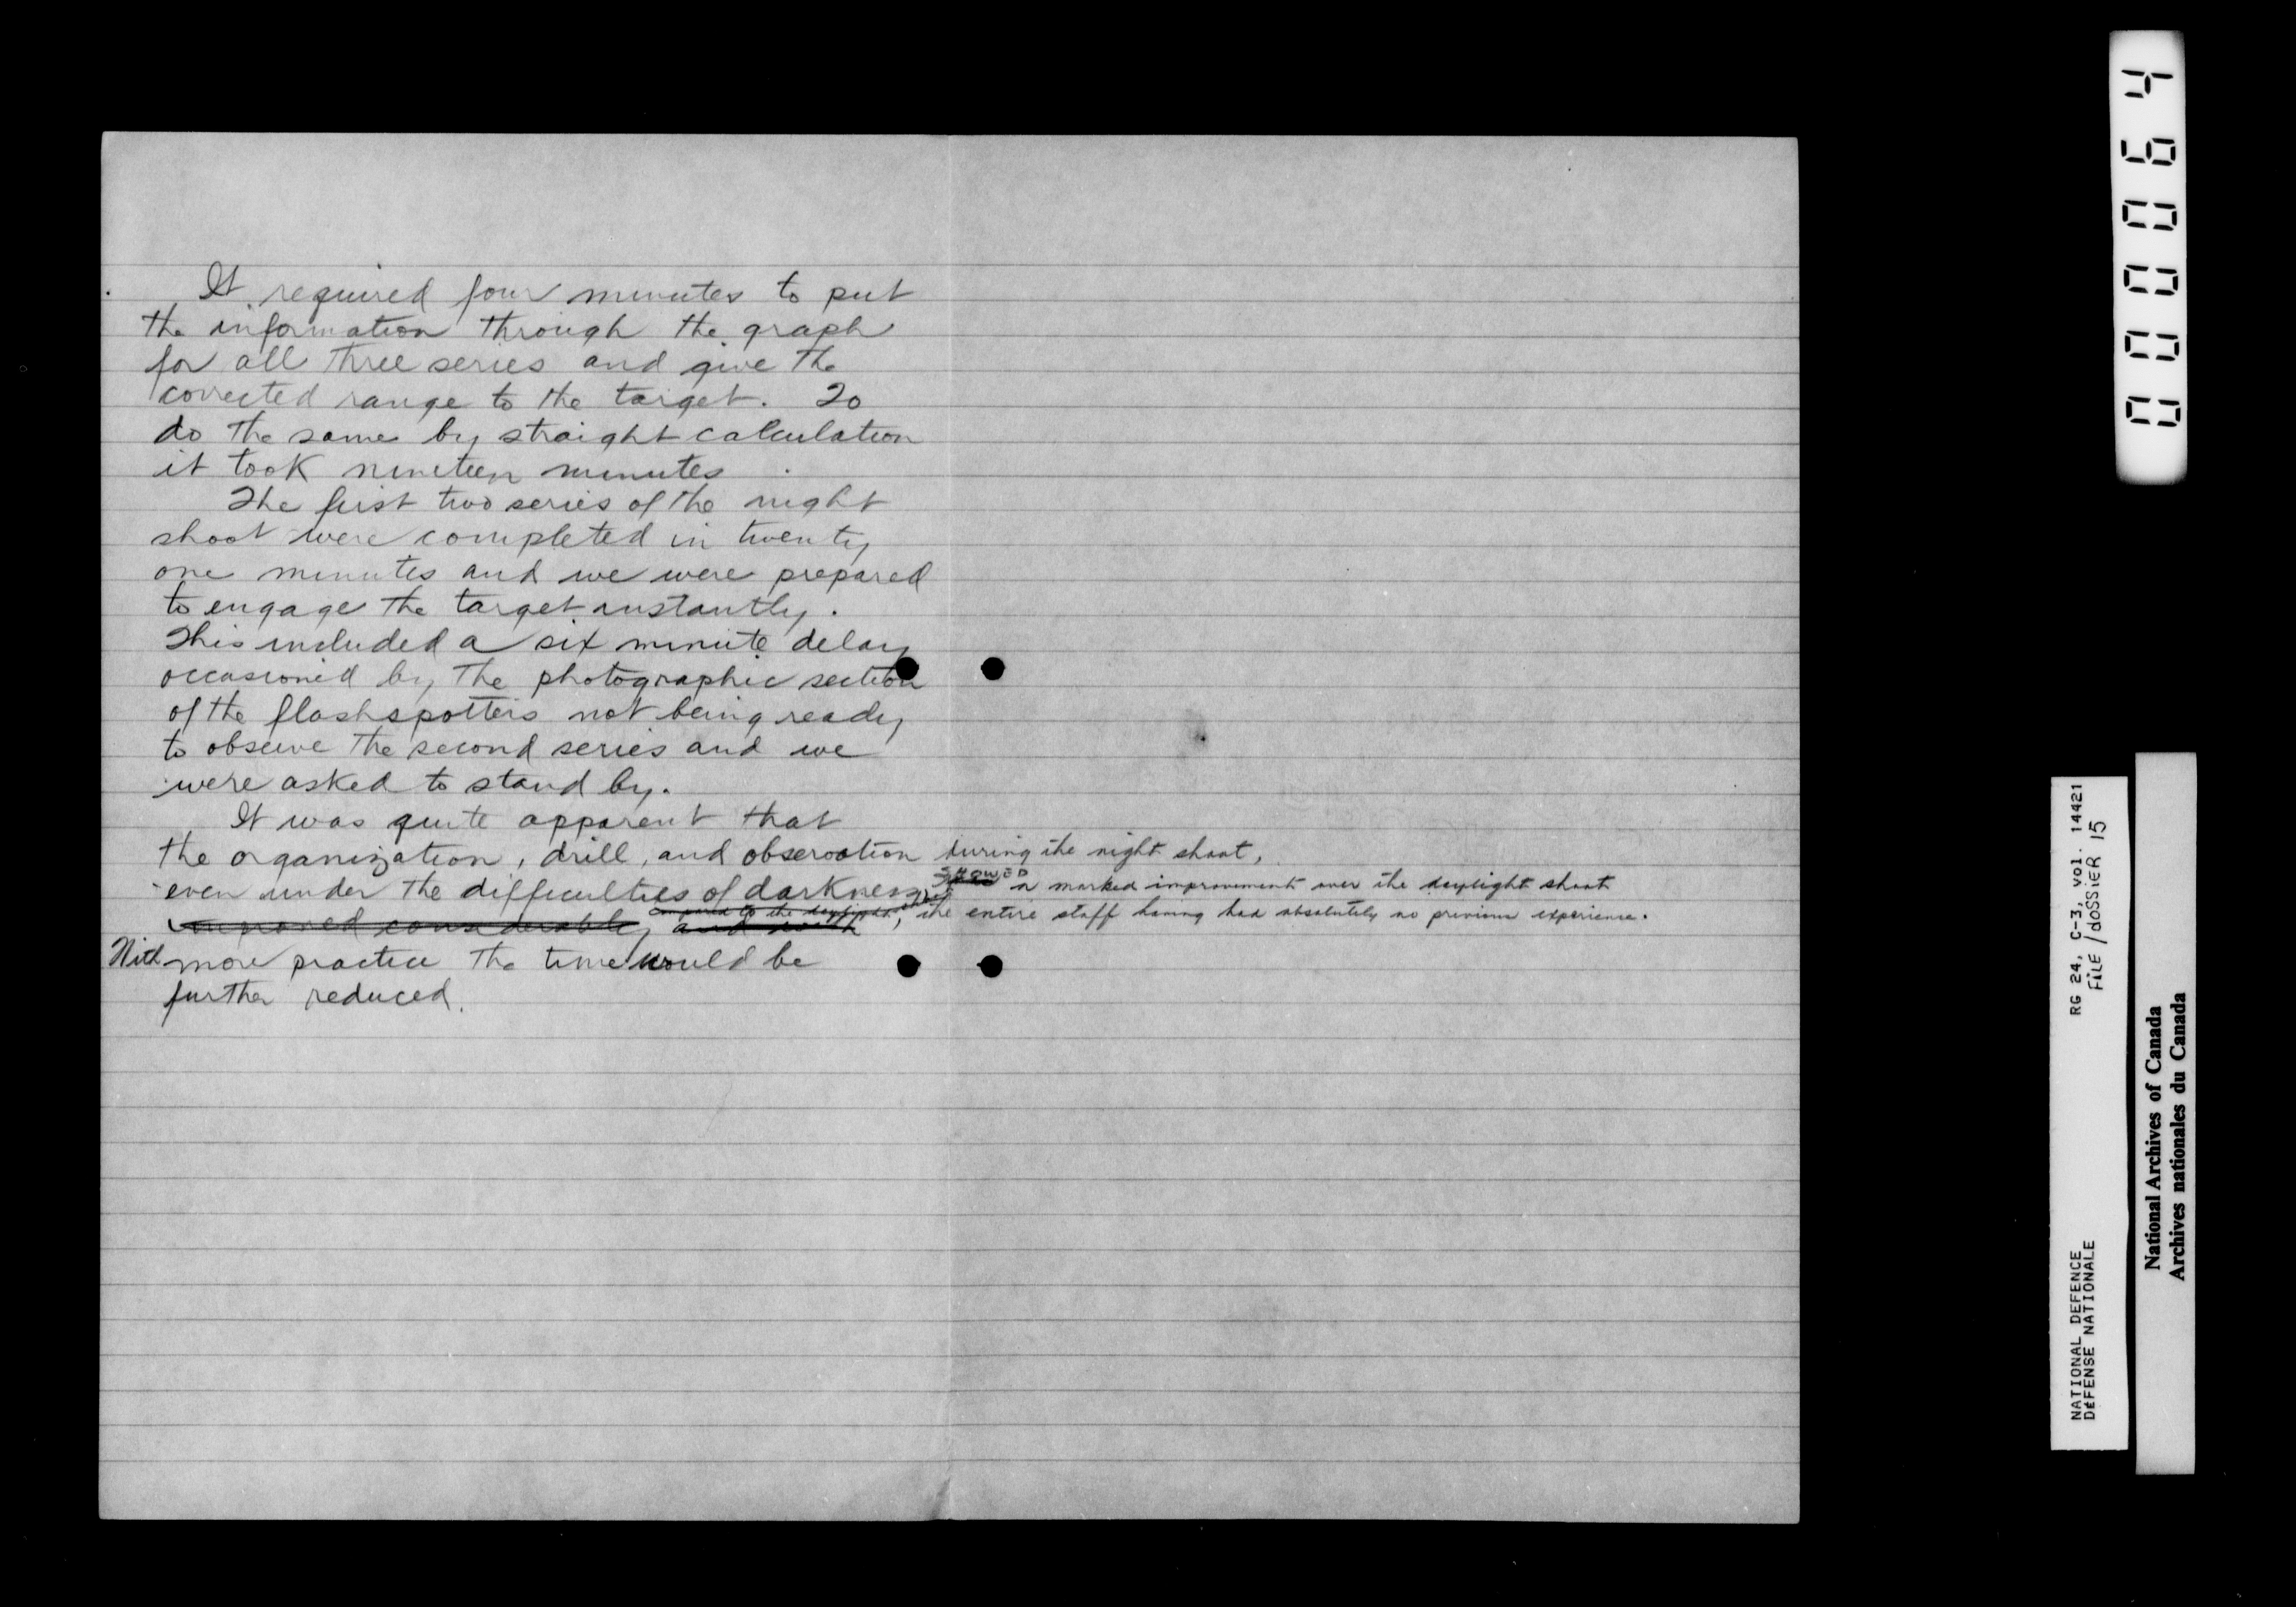 It required four minutes to put
the information through the graph
for all three series and give the
corrected range to the target. To
do the same by straight calculation
it took nineteen minutes.
The first two series of the night
shoot were completed in twenty
one minutes and we were prepared
to engage the target instantly.
This included a six minute delay
occasioned by the photographic section
of the flashspotters not being ready
to observe the second series and we
were asked to stand by.
It was quite apparent that
the organization, drill, and observation during the night shoot,
even under the difficulties of darkness, SHOWED a marked improvement over the daylight shoot
compared to the daylight shoot
improved considerably and with, the entire staff having had absolutely no previous experience.
With more practice the time would be
further reduced.
000064
RG 24, C-3, vol. 14421
FILE/dOSSIER 15
NATIONAL DEFENCE
DÉFENSE NATIONALE
National Archives of Canada
Archives nationales du Canada